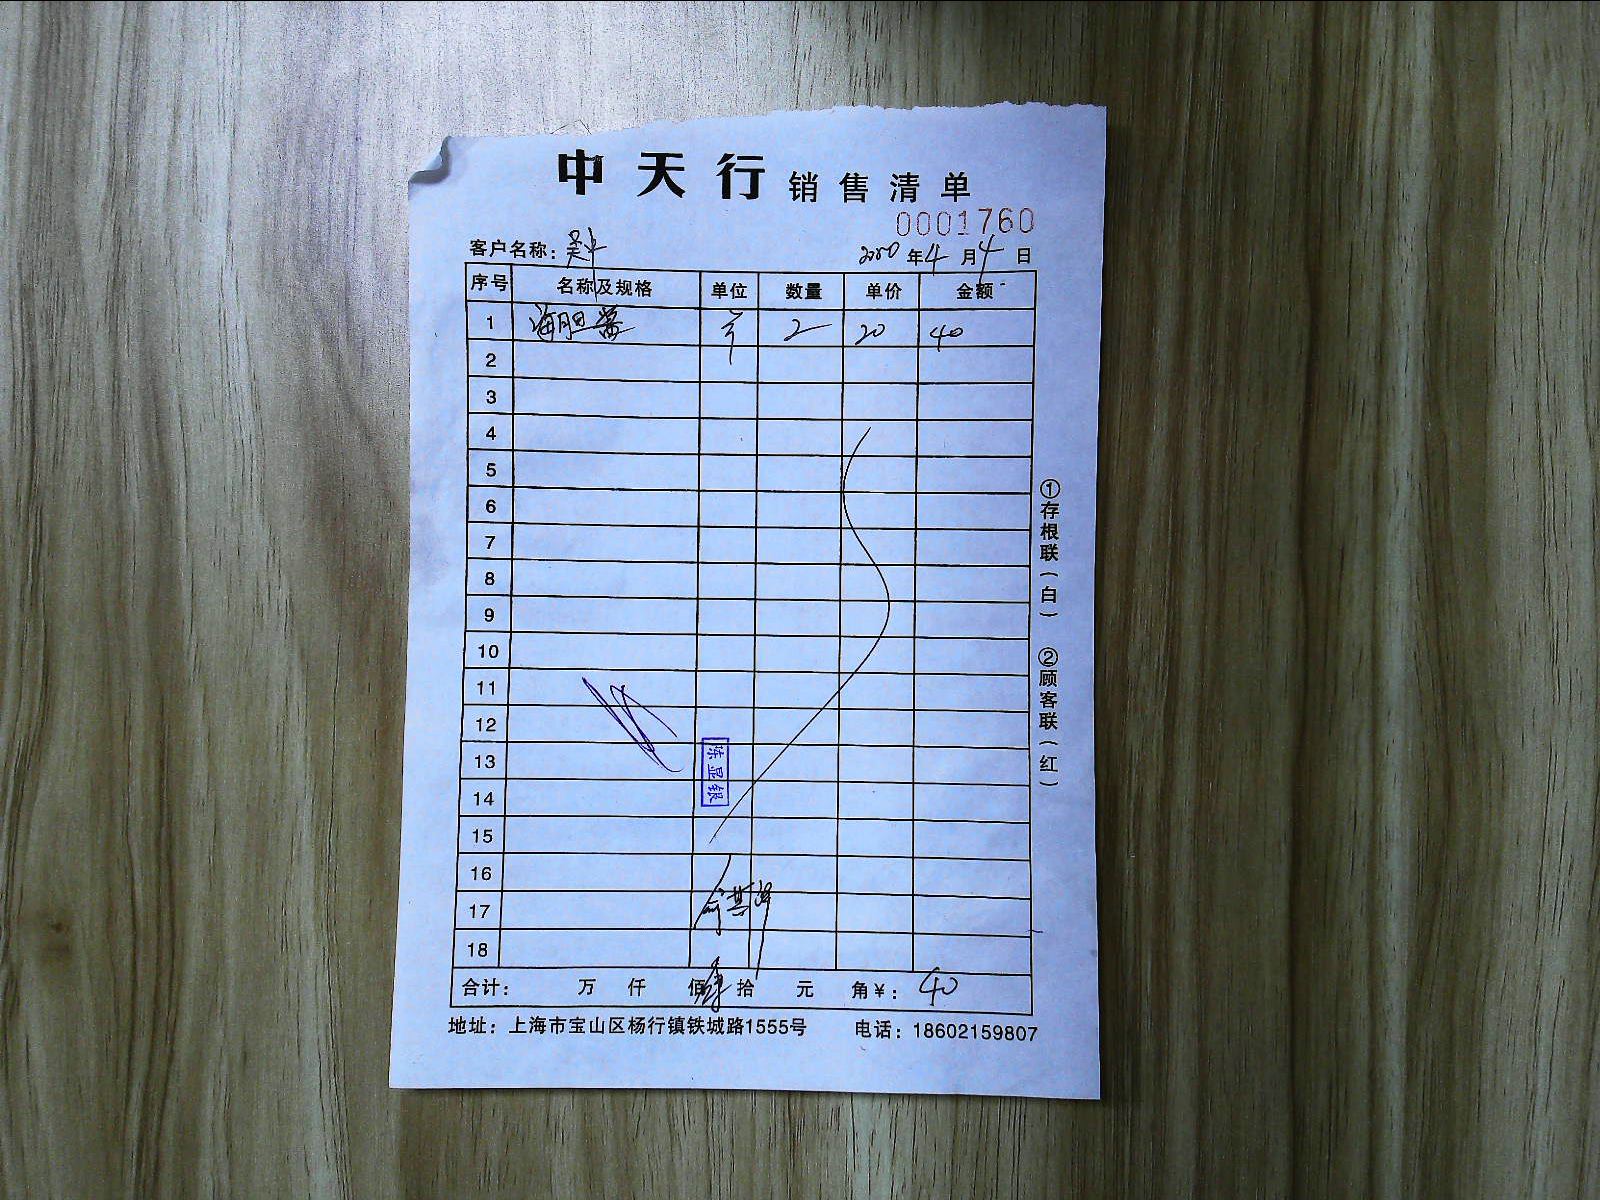 中天行 销售清单
0001760
客户名称： 年4月4日
序号 名称及规格 单位 数量 单价 金额
1 海胆 2 20 40
2
3
4
5
6
7
8
9
10
11
12
13
14
15
16
17
18
合计： 万 仟 佰 肆 拾 元 角￥： 40
地址：上海市宝山区杨行镇铁城路1555号 电话：18602159807
①存根联（白） ②顾客联（红）
陈显银